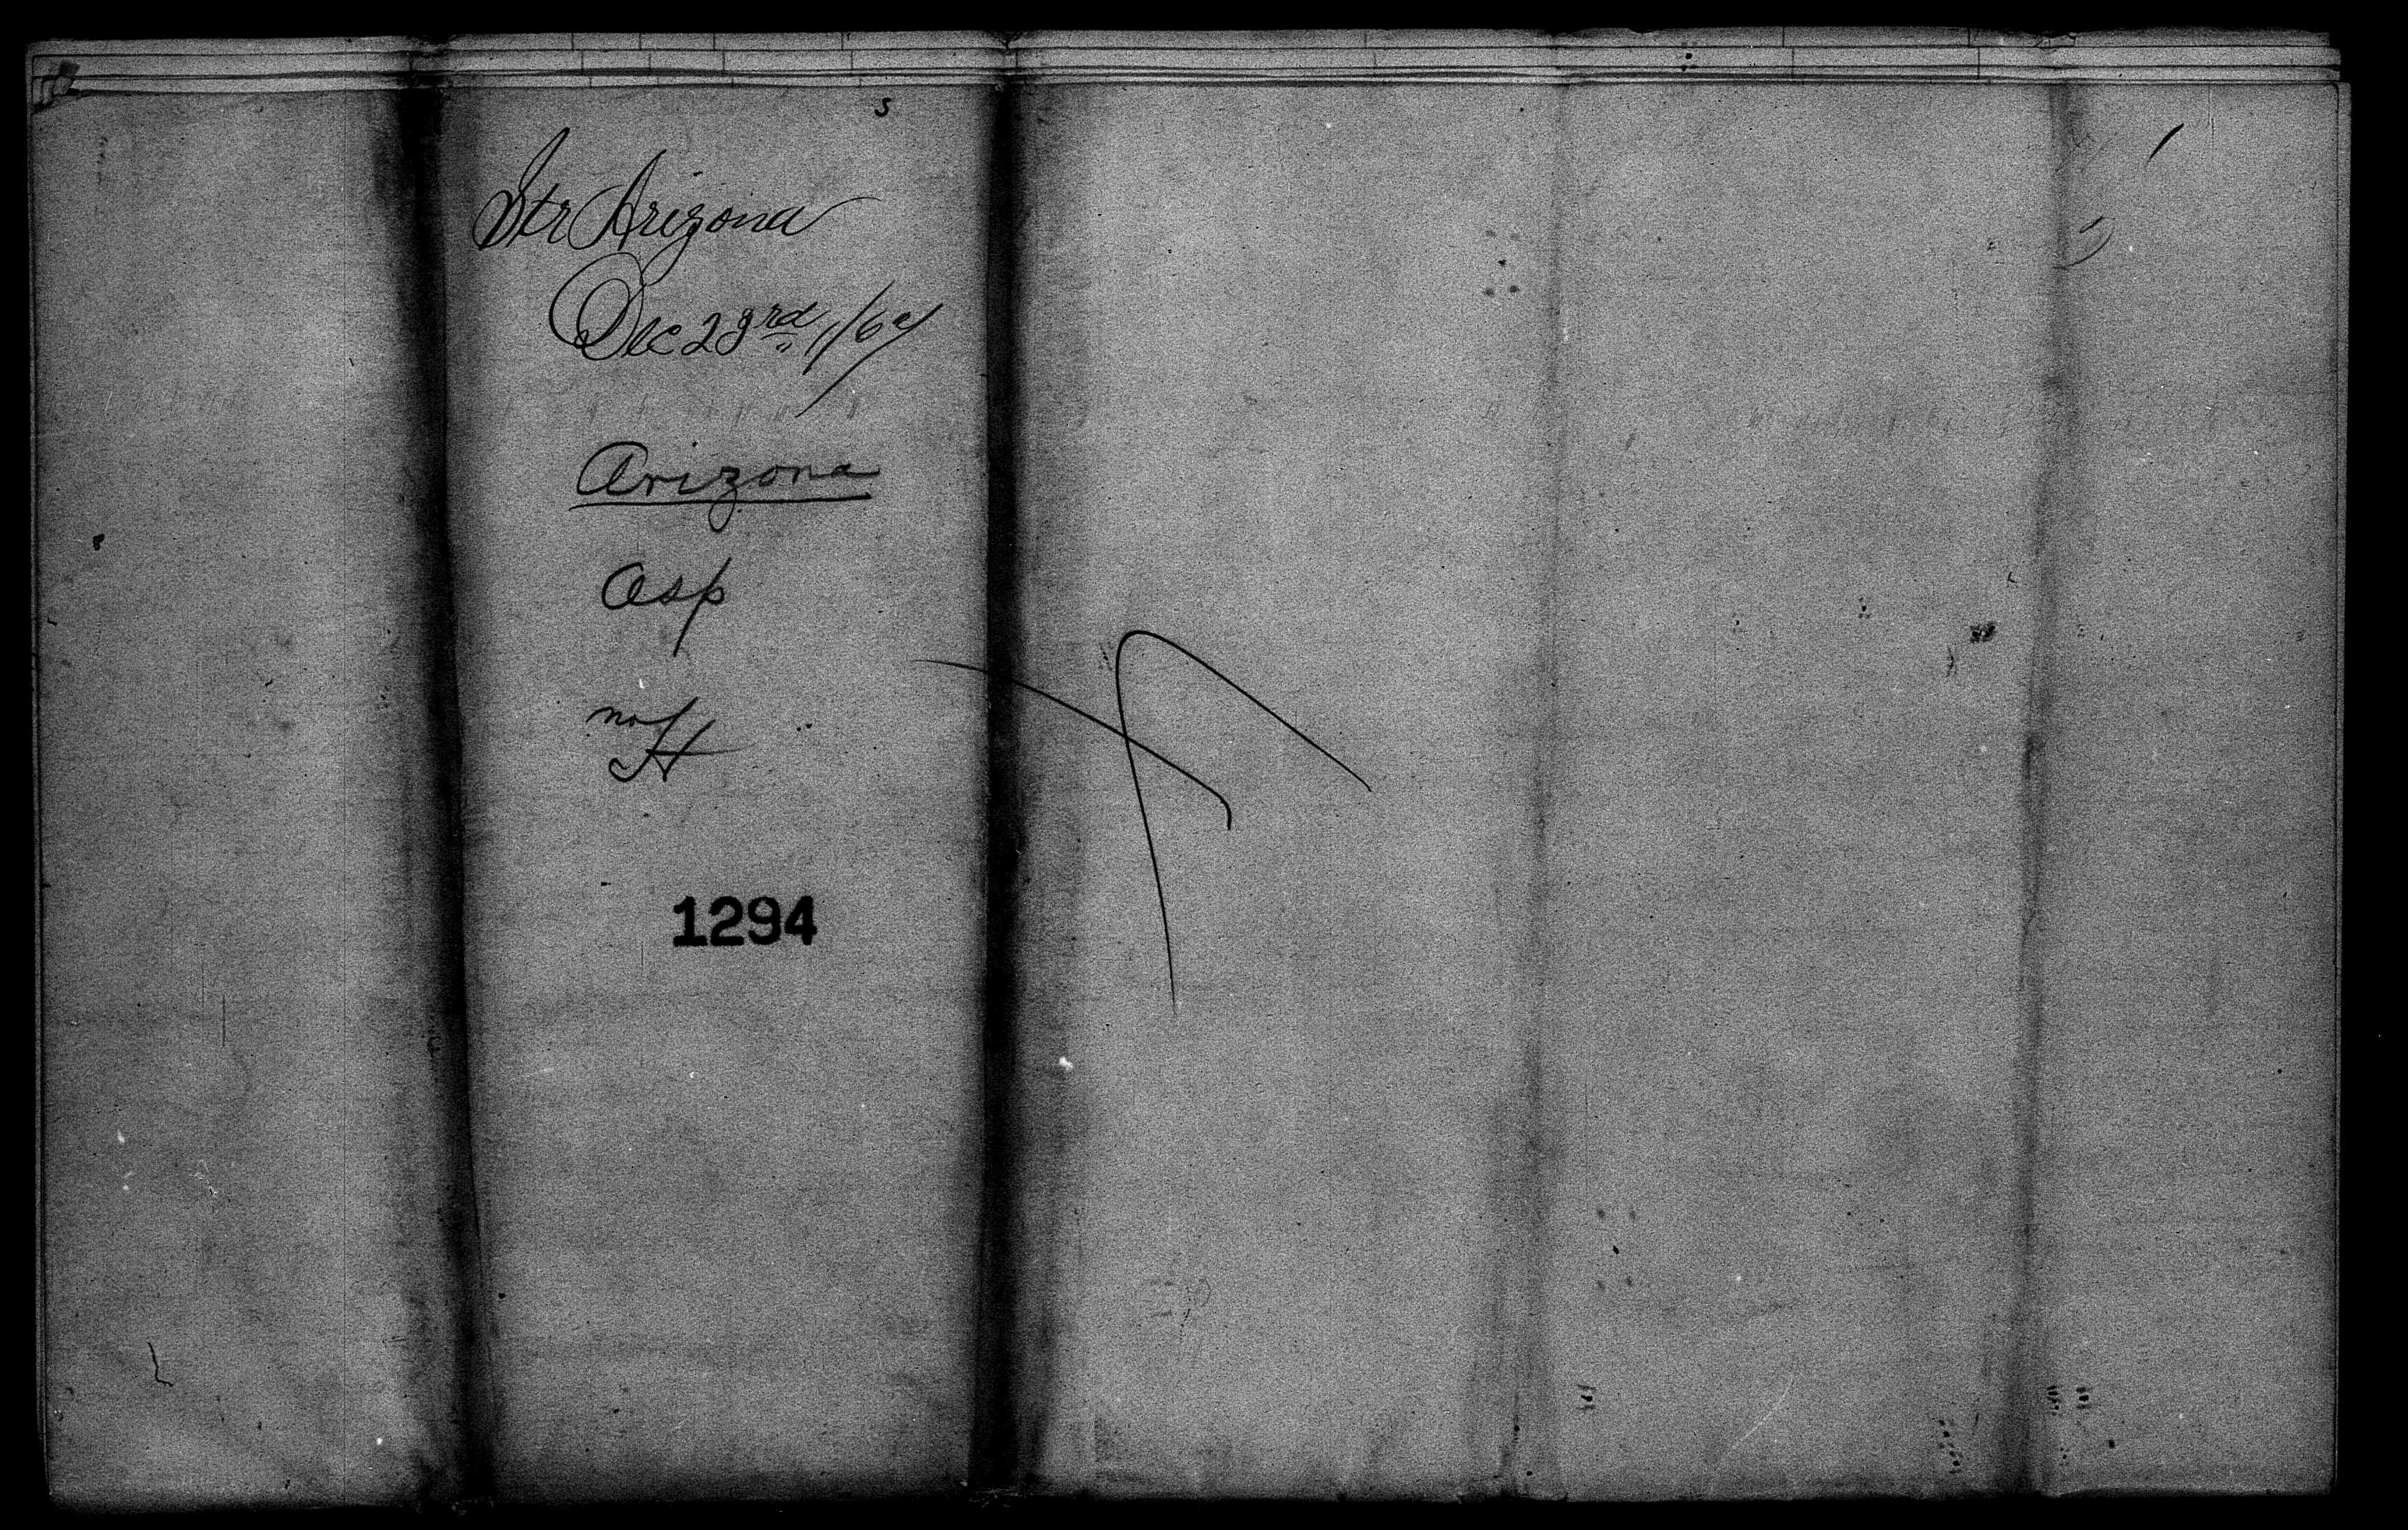 Str Arizona
Dec 23rd,
Arizona
Asp
no H
1294